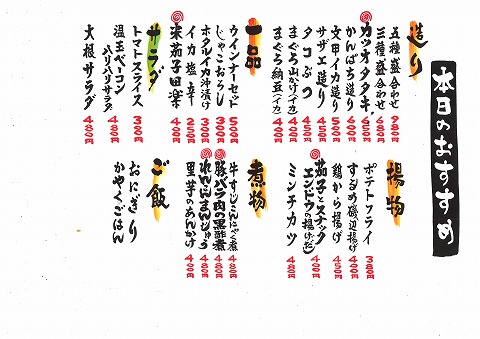 本日のおすすめ
造り
五種盛合わせ 980円
三種盛合わせ 680円
カツオタタキ 650円
かんぱち造り 600円
文甲イカ造り 500円
サザエ造り 450円
タコぶつ 450円
まぐろ山かけ(イカ) 400円
まぐろ納豆(イカ) 400円
一品
ウインナーセット 500円
じゃこおろし 300円
ホタルイカ沖漬け 300円
イカ塩辛 250円
米茄子田楽 400円
サラダ
トマトスライス 300円
温玉ベーコン
ハリハリサラダ 480円
大根サラダ 480円
揚物
ポテトフライ 380円
するめ磯辺揚げ 400円
鶏から揚げ 450円
茄子とスナック
エンドウの揚げだし 480円
ミンチカツ 480円
煮物
牛すじこんにゃく煮 480円
豚バラ肉の黒酢煮 480円
れんこんまんじゅう 480円
里芋のあんかけ 480円
ご飯
おにぎり
かやくごはん